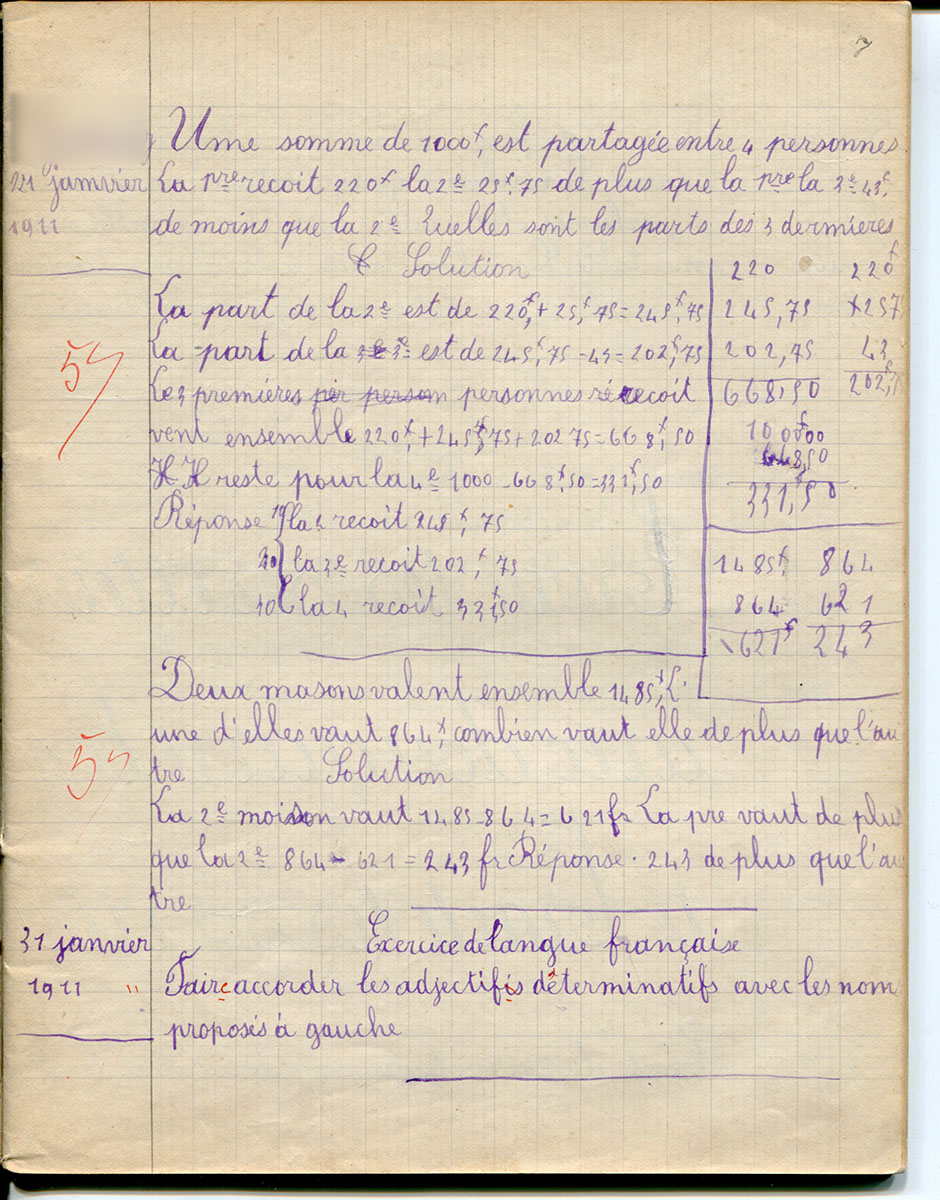 7
Une somme de 1000f, est partagée entre 4 personnes.
21 janvier
1911
La 1pre recoit 220f la 2e 25f,75 de plus que la 1pre la 3e 43f,
de moins que la 2e Quelles sont les parts des 3 dernieres
Solution
La part de la 2e est de 220f,+25,f75=245,f75
La part de la 3e 3e est de 245f,75-43=202f,75
Le 3 premieres per person personnes ré recoit
vent ensemble 220f,+245f,75+202 75=668f,50
Il reste pour la 4e 1000-668f,50=331f,50
Réponse la 2 recoit 245f,75
la 3e recoit 202f,75
la 4 recoit 331,50
220
245,75
202,75
668,50
1000f00
668,50
331,50
220f
43
1485f
864
621f
864
621
243
Deux masons valent ensemble 1485f, L'
une d'elles vaut 864f, combien vaut elle de plus que l'au
tre
Solution
La 2e moison vaut 1485-864=621fr La pre vaut de plu
que la 2e 864-621=243fr Réponse. 243 de plus que l'au
tre
31 janvier
1911 "
Exercice de langue française
Faire accorder les adjectifis déterminatifs avec les nom
proposés à gauche